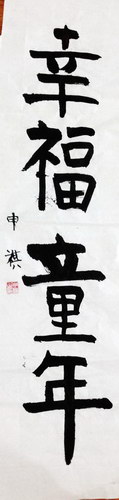 幸福童年
申祺